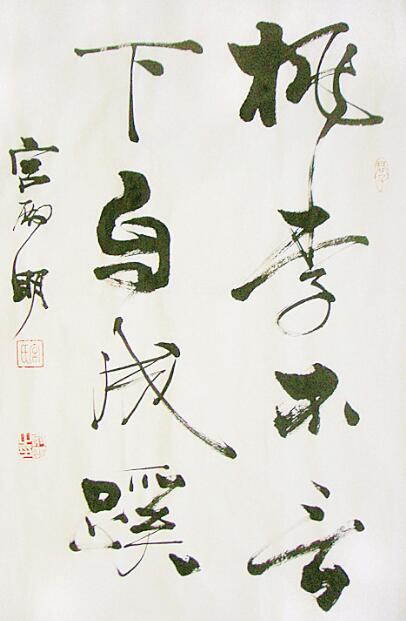 桃李不言
下自成蹊
宫 明